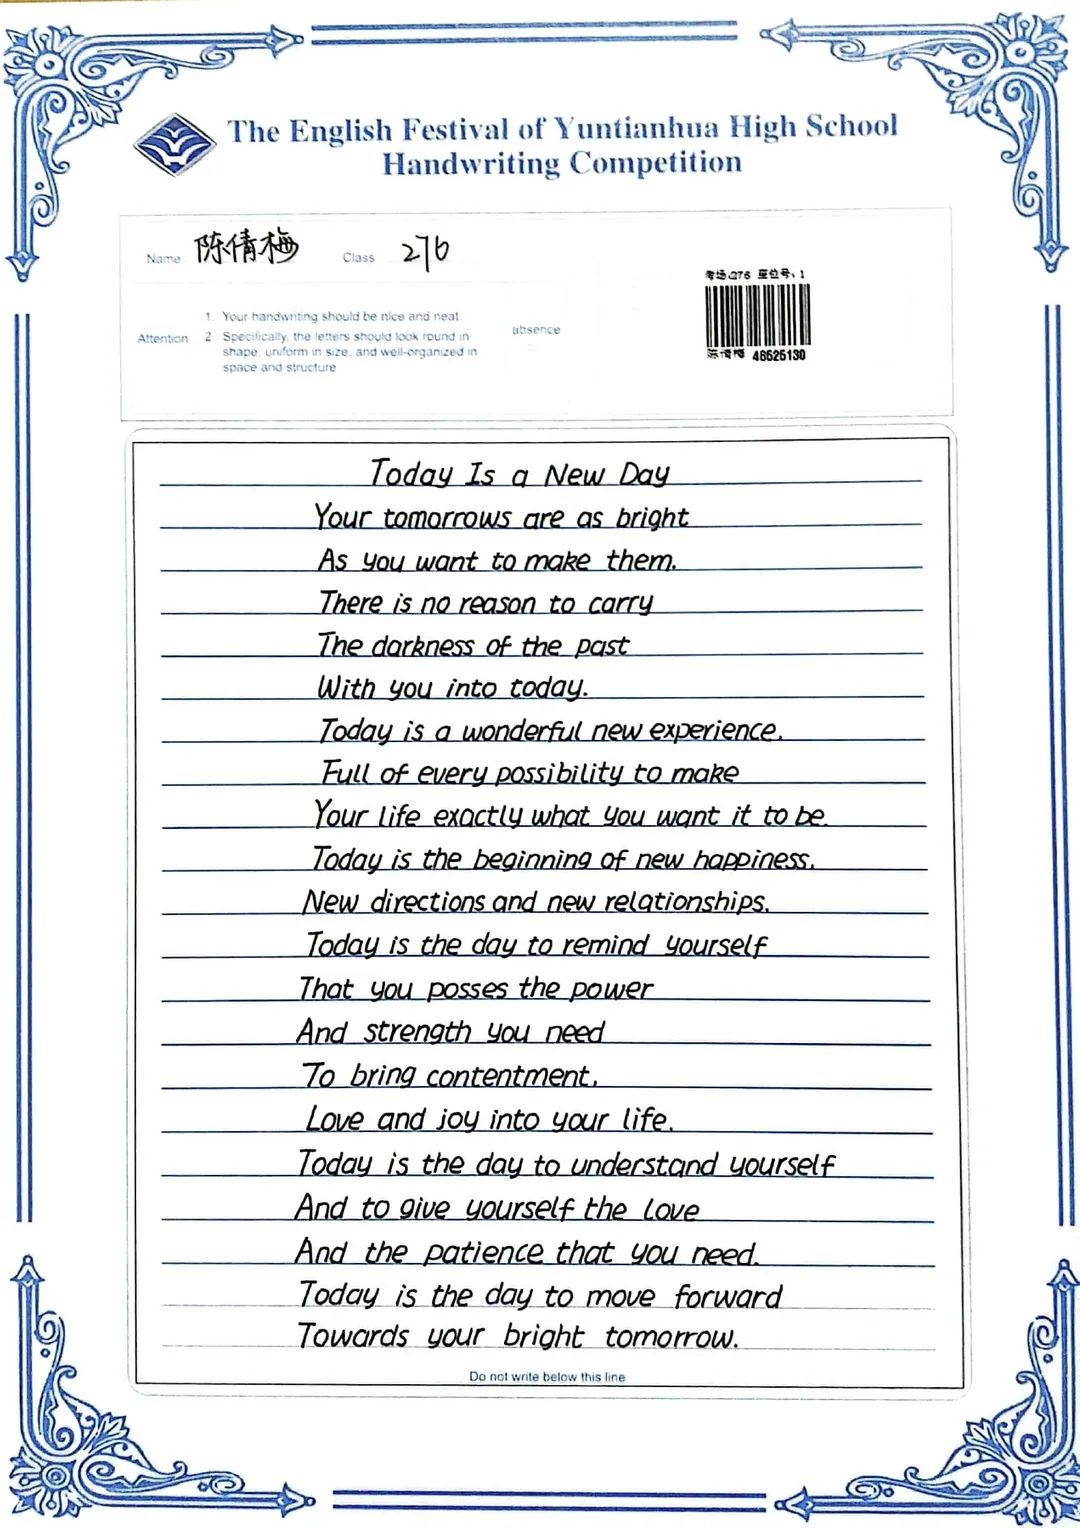 The English Festival of Yuntianhua High School
Handwriting Competition
Name 陈倩梅 Class 276
考场:276 座位号:1
Attention
1. Your handwriting should be nice and neat.
2 Specifically, the letters should look round in
shape, uniform in size, and well-organized in
space and structure
absence
陈倩梅 46525130
Today Is a New Day
Your tomorrows are as bright
As you want to make them.
There is no reason to carry
The darkness of the past
With you into today.
Today is a wonderful new experience.
Full of every possibility to make
Your life exactly what you want it to be.
Today is the beginning of new happiness.
New directions and new relationships.
Today is the day to remind yourself
That you posses the power
And strength you need
To bring contentment.
Love and joy into your life.
Today is the day to understand yourself
And to give yourself the love
And the patience that you need.
Today is the day to move forward
Towards your bright tomorrow.
Do not write below this line